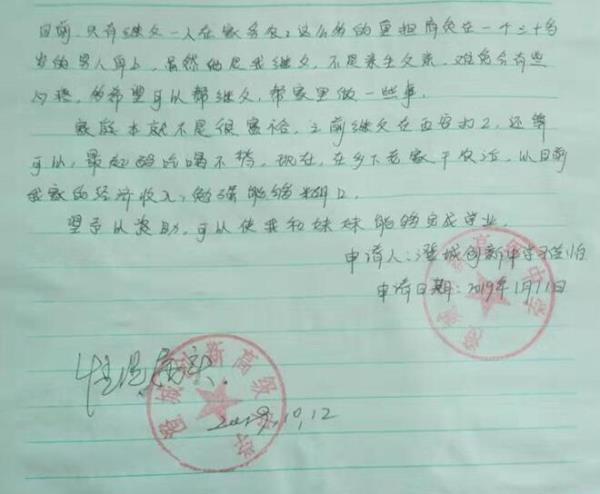 目前,只有继父一人在家务农,这么多的重担肩负在一个三十多
岁的男人身上,虽然他是我继父,不是亲生父亲,难免会有些
内疚,多希望可以帮继父,帮家里做一些事。
家庭本就不是很富裕,之前继父在西安打工,还算
可以,最起码吃喝不愁,现在,在乡下老家干农活,以目前
我家的经济收入,勉强能够糊口。
望予以资助,可以使我和妹妹能够完成学业。
申请人:澄城创新中学
申请日期:2019年1月11日
情况属实.
10.12
澄城创新高级中学